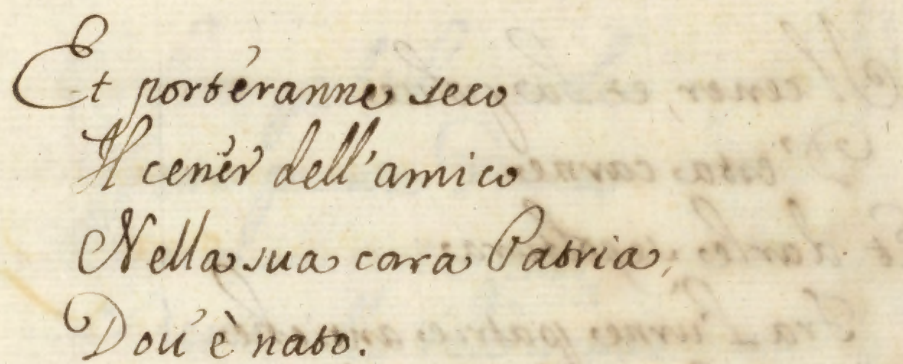 Et porteranne seco
Il cener dell'amico
Nella sua cara Patria,
Dou' è nato.